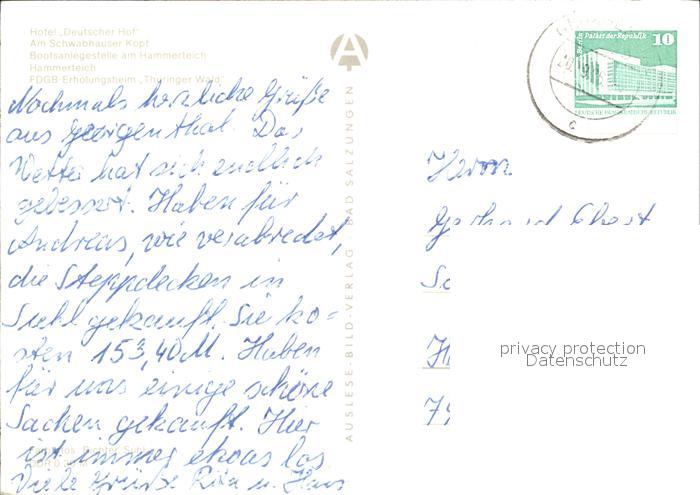 Hotel „Deutscher Hof"
Am Schwabhäuser Kopf
Bootsanlegestelle am Hammerteich
Hammerteich
FDGB-Erholungsheim „Thüringer Wald"
Nochmals herzliche Grüße
aus Georgenthal. Das
Wetter hat sich endlich
gebessert. Haben für
Andreas, wie verabredet,
die Steppdecken in
Suhl gekauft. Sie ko=
sten 153,40 M. Haben
für uns einige schöne
Sachen gekauft. Hier
ist immer etwas los
Viele Grüße Rita u. Hans
AUSLESE-BILD-VERLAG BAD SALZUNGEN
Berlin Palast der Republik
10
DEUTSCHE DEMOKRATISCHE REPUBLIK
c
Herrn
privacy protection
Datenschutz